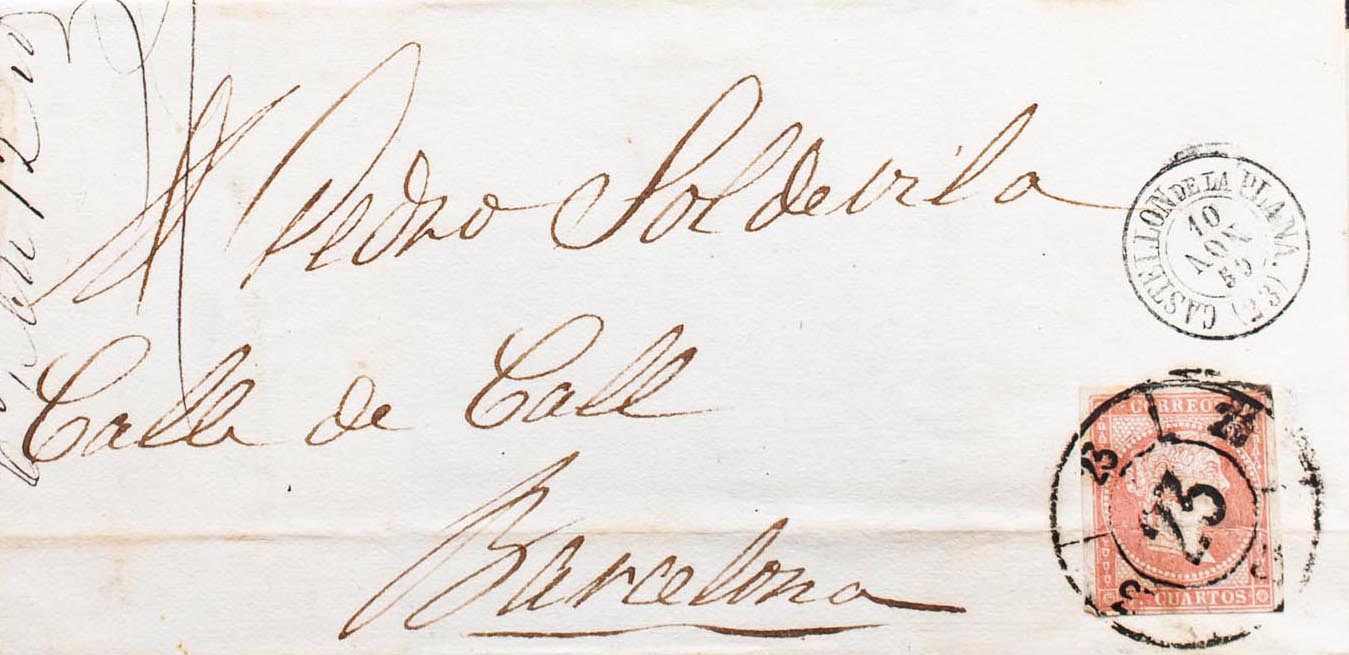 Pedro Soldevila
Calle de Call
Barcelona
CASTELLON DE LA PLANA. (23)
10
59
CORREOS
23
23
23
CUARTOS